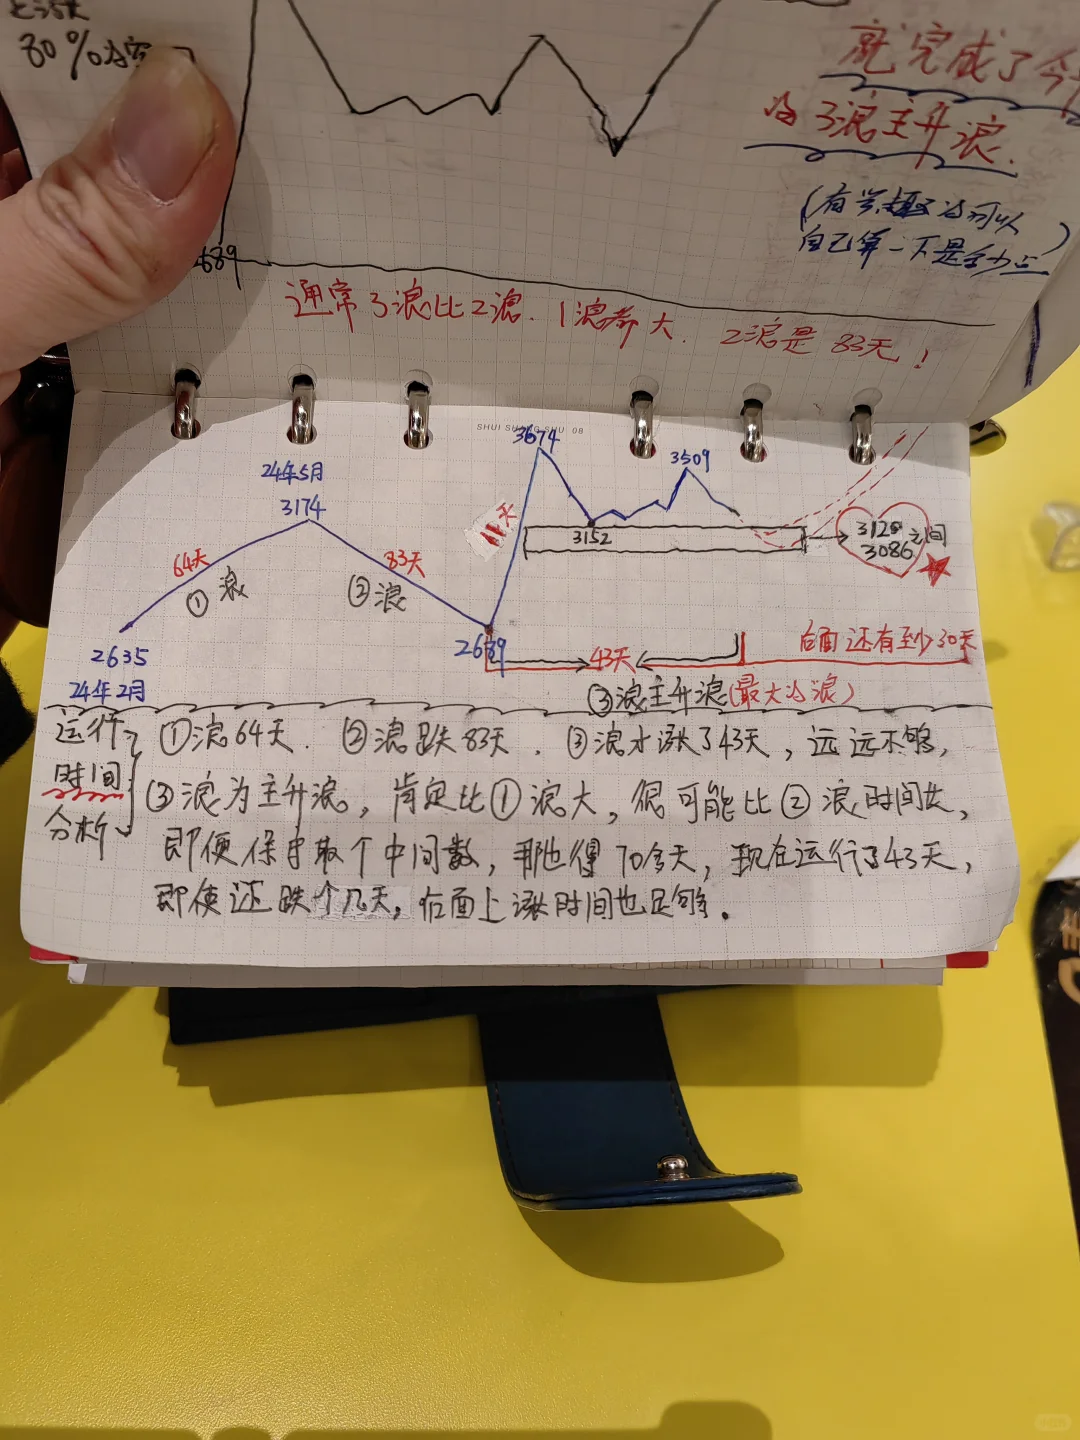 80%
就完成了今
的3浪主升浪.
(有兴趣的可以
自己算一下是多少点)
689
通常3浪比2浪.1浪都大. 2浪是83天!
SHUI SHANG SHU 08
3674
24年5月
3174
3509
11天
3152
3125 之间
3086
64天
① 浪
83天
② 浪
2635
24年2月
2689
43天
后面还有至少30天
③浪主升浪(最大的浪)
运行时间分析
①浪64天. ②浪跌83天. ③浪才涨了43天,远远不够,
③浪为主升浪,肯定比①浪大,很可能比②浪时间长,
即便保守取个中间数,那也得70多天,现在运行了43天,
即使还跌个几天,后面上涨时间也足够.